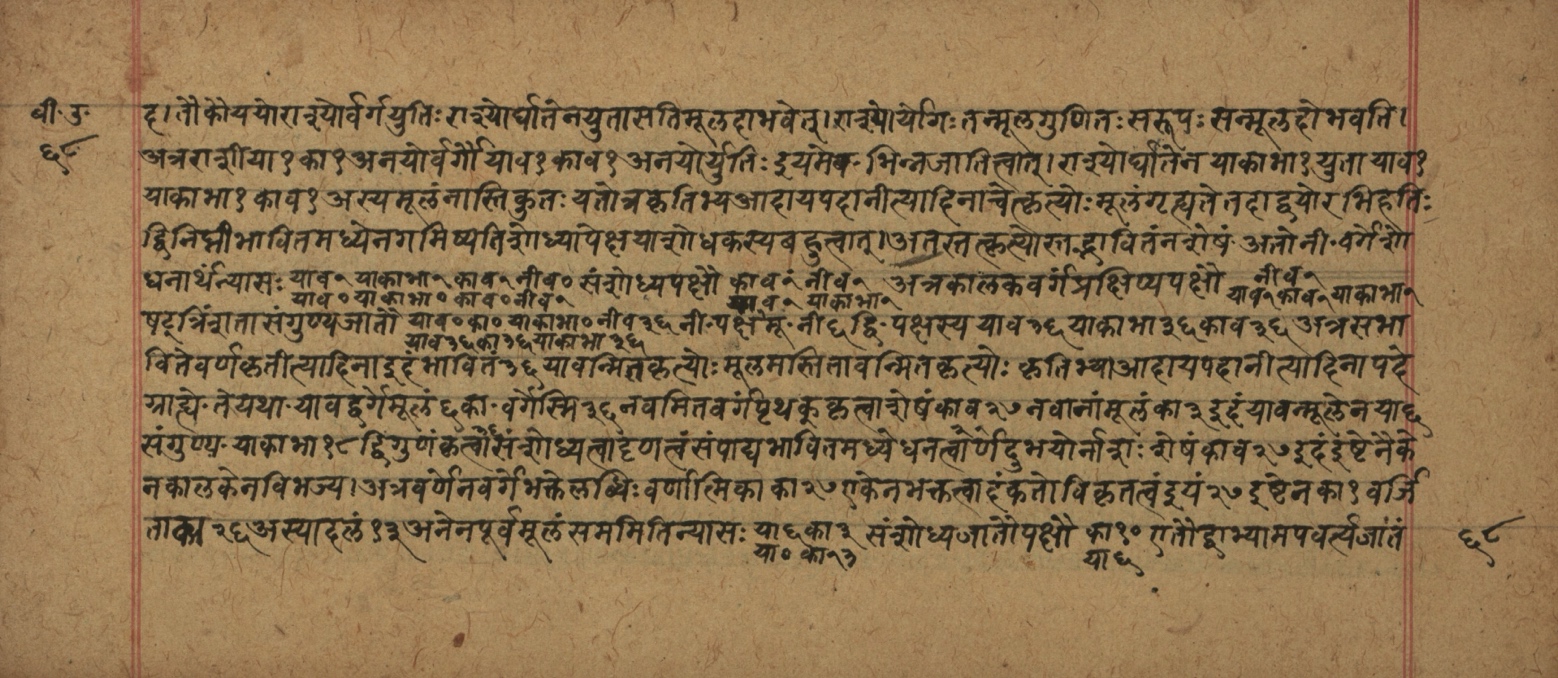 बी. उ.
६८
ह। तौ कौ ययो राश्योर्वर्गयुतिः राश्योर्घातेन युता सति मूलदा भवेत्। राश्योर्योगः तन्मूलगुणितः सरूपः सन्मूलदो भवति।
अत्र राशी या १ का १ अनयोर्वर्गौ याव १ काव १ अनयोर्युतिः इयमेव भिन्नजातित्वात्। राश्योर्घातेन याकाभा १ युता याव १
याकाभा १ काव १ अस्य मूलं नास्ति कुतः यतोत्र कृतिभ्य आदाय पदानीत्यादिना चेत्कृत्योः मूलं गृह्यते तदा द्वयोरभिहतिः
द्विनिघ्नी भावितमध्ये न गमिष्यति शोध्यापेक्षया शोधकस्य बहुत्वात्। अतस्तत्कृत्योस्तद्भावितं न शेषं अतो नी. वर्गे शो
धनार्थं न्यासः याव १ याकाभा १ काव १ नीव ० संशोध्य पक्षौ काव १ं नीव १ अत्र कालकवर्गं प्रक्षिप्य पक्षौ नीव १
याव ० याकाभा ० काव ० नीव १ याव १ याकाभा १ याव १ काव १ याकाभा १
षट्त्रिंशता संगुण्य जातौ याव ० का ० याकाभा ० नीव ३६ नी. पक्षमू. नी ६ द्वि. पक्षस्य याव ३६ याकाभा ३६ काव ३६ अत्र सभा
याव ३६ का ३६ याकाभा ३६
विते वर्णकृतीत्यादिना इदं भावितं ३६ यावन्मितकृत्योः मूलमस्ति तावन्मितकृत्योः कृतिभ्या आदाय पदानीत्यादिना पदे
ग्राह्ये. ते यथा. यावद्वर्गे मूलं ६ का. वर्गेस्मि ३६ नवमितवर्गं पृथक् कृत्वा शेषं काव २७ नवानां मूलं का ३ इदं यावन्मूलेन या ६
संगुण्य. याकाभा १८ द्विगुणं कृत्वा संशोध्यत्वादृणत्वं संपाद्य भावितमध्ये धनत्वार्णेदुभयोर्नाशः शेषं काव २७ इदं इष्टेनैके
न कालकेन विभज्य। अत्र वर्णेन वर्गे भक्ते लब्धिः वर्णात्मिका का २७ एकेन भक्तत्वादंकतो विकृतत्वं इयं २७ इष्टेन का १ वर्जि
ता का २६ अस्या दलं १३ अनेन पूर्वमूलं सममिति न्यासः या ६ का ३ संशोध्य जातौ पक्षौ का १० एतौ द्वाभ्यामपवर्त्य जातं
या ० का १३ या ६
६८